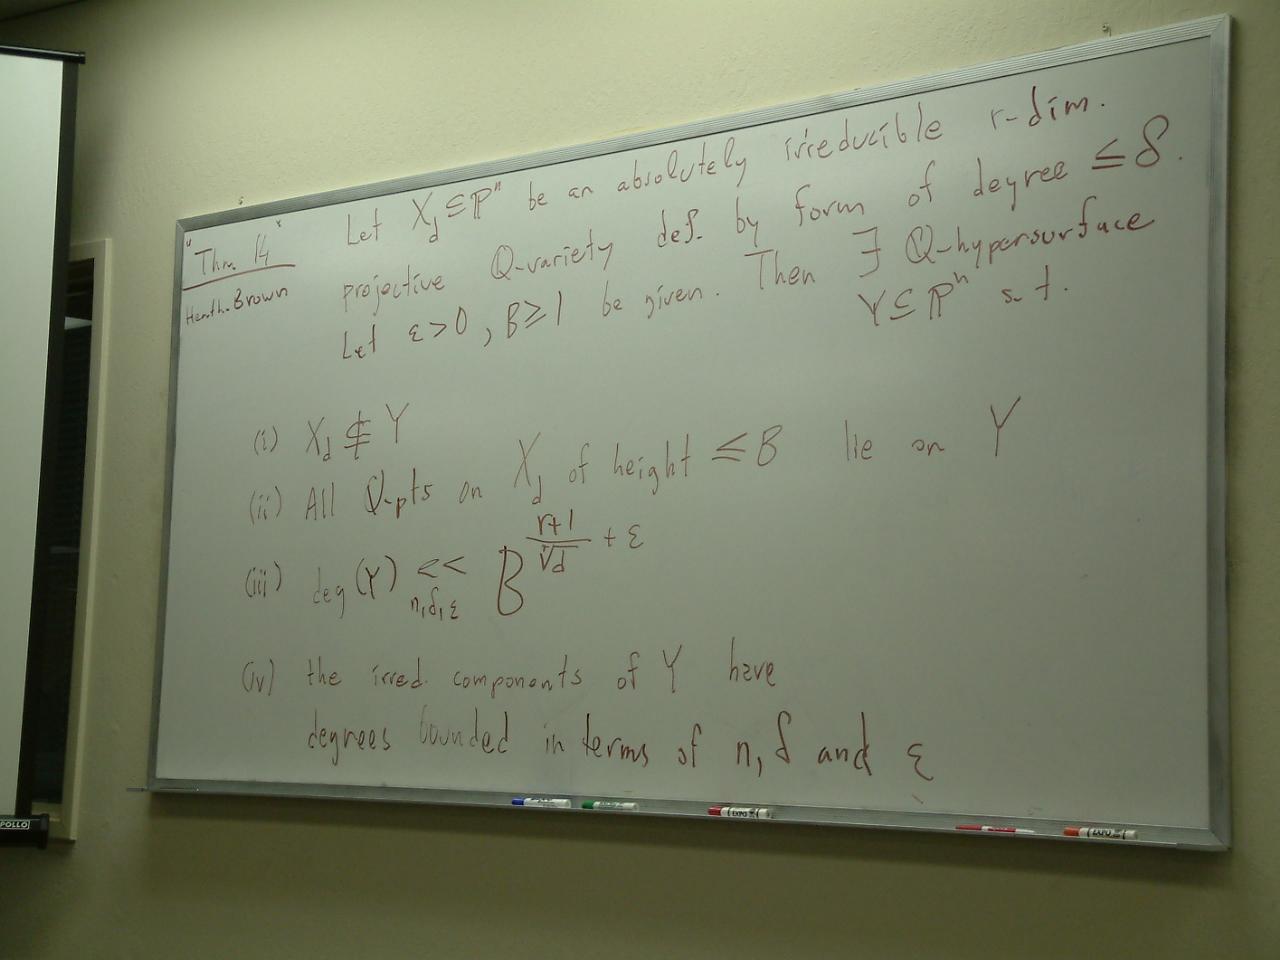 "Thm. 14"
Heath-Brown
Let X_d ⊆ ℙ^n be an absolutely irreducible r-dim.
projective Q-variety def. by form of degree ≤ δ.
Let ε > 0, B ≥ 1 be given. Then ∃ Q-hypersurface
Y ⊆ ℙ^n s.t.
(i) X_d ⊈ Y
(ii) All Q-pts on X_d of height ≤ B lie on Y
(iii) deg(Y) <<_{n,δ,ε} B^{\frac{r+1}{\sqrt[r]{d}} + ε}
(iv) the irred. components of Y have
degrees bounded in terms of n, δ and ε
POLLO
EXPO
EXPO